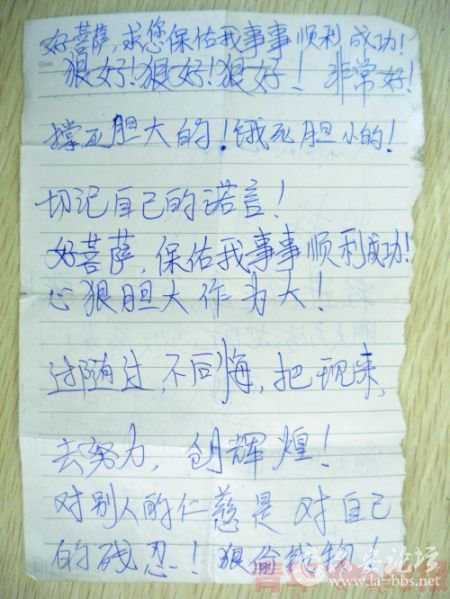 好菩萨,求您保佑我事事顺利成功!
狠好!狠好!狠好! 非常好!
撑死胆大的!饿死胆小的!
切记自己的诺言!
好菩萨,保佑我事事顺利成功!
心狠胆大作为大!
过随过,不回悔,把现来,
去努力,创辉煌!
对别人的仁慈是对自己
的残忍!狠偷钱物!
论坛
www.la-bbs.net